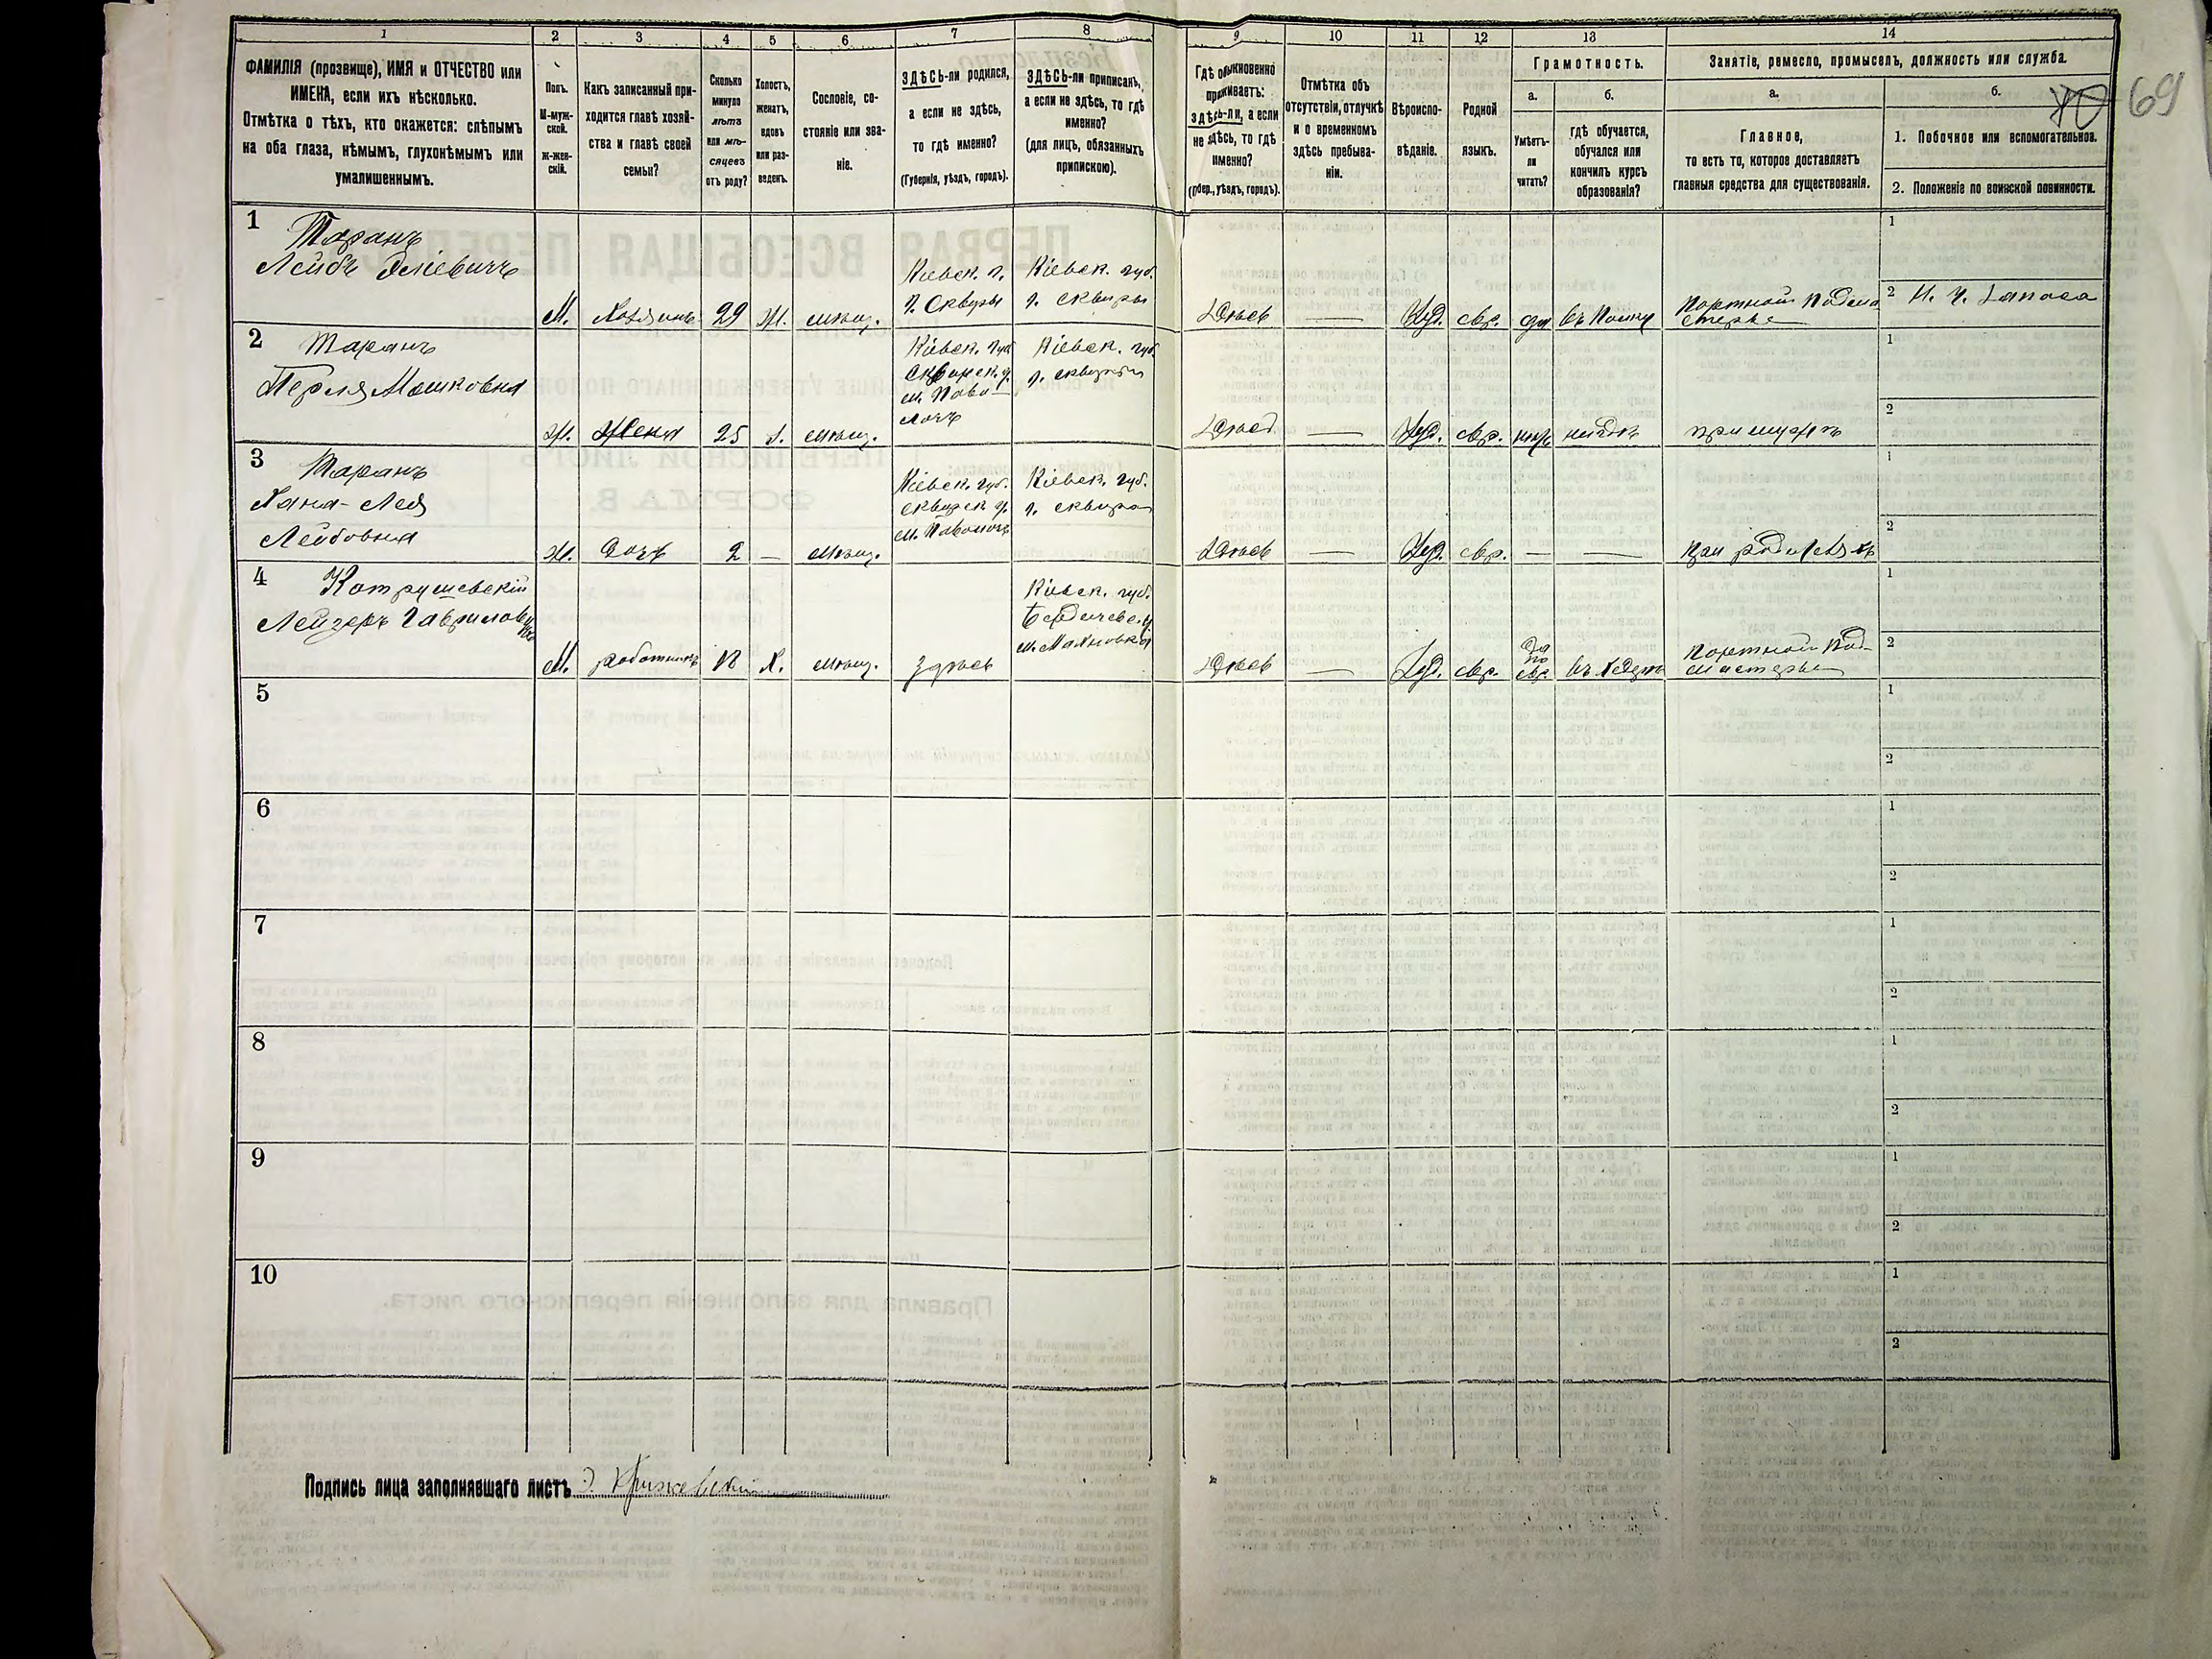 1 2 3 4 5 6 7 8 9 10 11 12 13 14
ФАМИЛІЯ (прозвище), ИМЯ и ОТЧЕСТВО или
ИМЕНА, если ихъ нѣсколько.
Отмѣтка о тѣхъ, кто окажется: слѣпымъ
на оба глаза, нѣмымъ, глухонѣмымъ или
умалишеннымъ.
Полъ.
М-муж-
ской.
Ж-жен-
скій.
Какъ записанный при-
ходится главѣ хозяй-
ства и главѣ своей
семьи?
Сколько
минуло
лѣтъ
или мѣ-
сяцевъ
отъ роду?
Холостъ,
женатъ,
вдовъ
или раз-
веденъ.
Сословіе, со-
стояніе или зва-
ніе.
ЗДѢСЬ-ли родился,
а если не здѣсь,
то гдѣ именно?
(Губернія, уѣздъ, городъ).
ЗДѢСЬ-ли приписанъ,
а если не здѣсь, то гдѣ
именно?
(для лицъ, обязанныхъ
припискою).
Гдѣ обыкновенно
проживаетъ:
здѣсь-ли, а если
не здѣсь, то гдѣ
именно?
(Губер., уѣздъ, городъ).
Отмѣтка объ
отсутствіи, отлучкѣ
и о временномъ
здѣсь пребыва-
ніи.
Вѣроиспо-
вѣданіе.
Родной
языкъ.
Грамотность.
а.
Умѣетъ-
ли
читать?
б.
гдѣ обучается,
обучался или
кончилъ курсъ
образованія?
Занятіе, ремесло, промыселъ, должность или служба.
а.
Главное,
то есть то, которое доставляетъ
главныя средства для существованія.
б.
1. Побочное или вспомогательное.
2. Положеніе по воинской повинности.
69
1
Таранъ
Лейбъ
М. Хозяинъ 29 Ж. мѣщ.
Кіевск. г.
г. Сквиры
Кіевск. губ.
г. Сквиры
Здѣсь — Іуд. евр. да
Портной Подма
стерье
1
2
2
Таранъ
Перля Мошковна
Ж. Жена 25 З. мѣщ.
Кіевск. губ
Сквирск. у.
м. Паво-
лочь
Кіевск. губ.
г. Сквиры
Здѣсь — Іуд. евр.
при мужѣ
1
2
3
Таранъ
Хана-Лея
Лейбовна
Ж. дочь 2 — мѣщ.
Кіевск. губ.
Сквирск у.
м. Паволочь
Кіевск. губ.
г. Сквира
Здѣсь — Іуд. евр. — —
При родителяхъ
1
2
4
Лейзеръ Гавриловичъ
М. работникъ Х. мѣщ. Здѣсь
Кіевск. губ.
Бердичевс. у
м. Махновка
Здѣсь — Іуд. евр.
да
по
евр.
въ Хедерѣ
Портной Под-
мастерье
1
2
5
1
2
6
1
2
7
1
2
8
1
2
9
1
2
10
1
2
Подпись лица заполнявшаго листъ